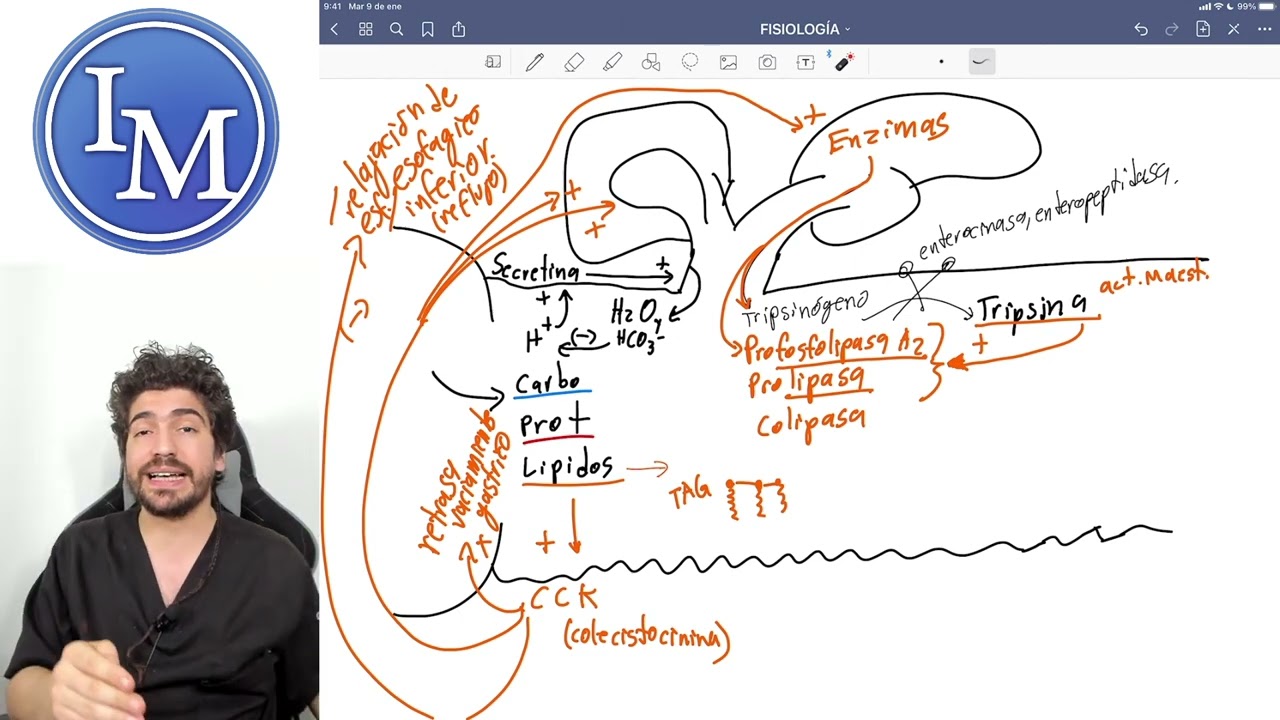 IM
9:41 Mar 9 de ene
99%
FISIOLOGÍA
T
relajación de
esf. esofagico
inferior.
(reflujo)
(-)
+
+
+
Enzimas
enterocinasa, enteropeptidasa.
Secretina
+
+
H+
(-)
H2O y
HCO3-
Tripsinógeno
Tripsina
act. Maest.
+
Profosfolipasa A2
Prolipasa
Colipasa
Carbo
Prot
Lípidos
TAG
retrasa
vaciamiento
gástrico
+
+
CCK
(colecistocinina)